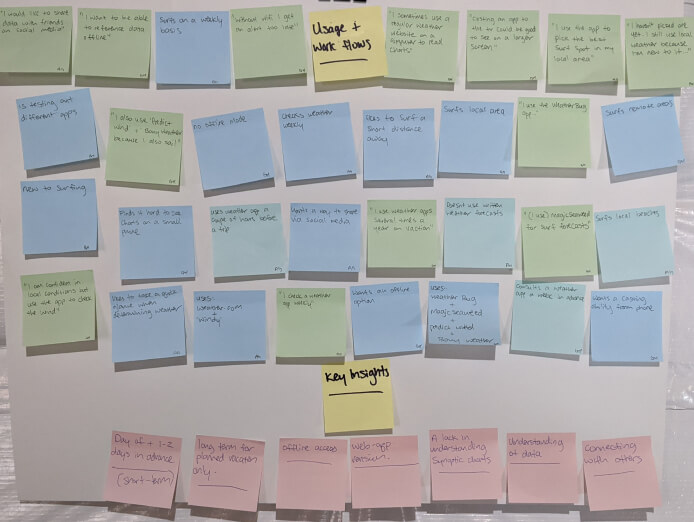 "I would like to share
data with friends
on social media"
"I want to be able
to reference data
offline"
Surfs on a weekly
basis
I get
an alert too late"
Usage +
Work Flows
"I sometimes use a
regular weather
website on a
computer to read
charts"
an app to
the TV could be good
to see on a larger
screen"
"I use the app to
pick the best
surf spot in my
local area"
"I haven't picked an app
yet. I still use local
weather because
I'm new to it.."
Is testing out
different apps
"I also use 'Predict
Wind' +
because I also sail"
no offline mode
Checks weather
weekly
likes to surf a
short distance
away
Surfs local area
"I use the WeatherBug
app.."
Surfs remote areas
New to surfing
Finds it hard to see
charts on a small
phone
Uses weather app a
couple of hours before
a trip
Wants a way to share
via social media
"I use weather apps
several times a
year on vacation"
Doesn't use written
weather forecasts
"(I use) magicseaweed
for surf forecasts"
Surfs local
"I am confident in
local conditions but
use the app to check
the wind"
Likes to
when
determining weather
Uses:
weather.com
+
windy
"I check a weather
app weekly"
Wants an offline
option
Uses:
Weather Bug
+
magicseaweed
+
predict wind
+
weather
Consults a weather
app a week in advance
Wants a casting
ability from phone
Key Insights
Day of + 1-2
days in advance
(short-term)
long term for
planned vacation
only.
offline access
Web-app
version.
A lack in
understanding
Synoptic charts
Understanding
of data
Connecting
with others